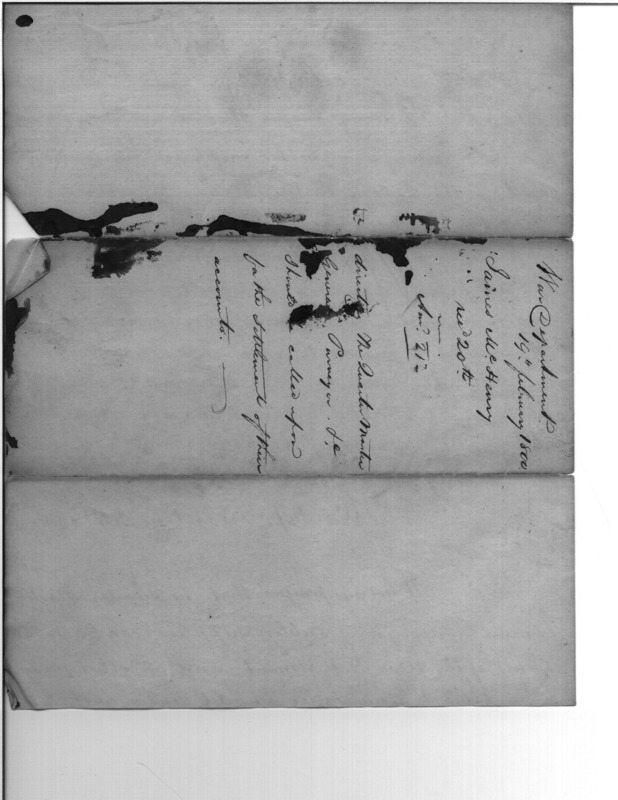 War Department
19th february 1800
James McHenry
rec'd 20th
Ans'd 21st
directing The Quarter Master
General Purveyor &c
Should be called upon
for the Settlement of their
accounts.